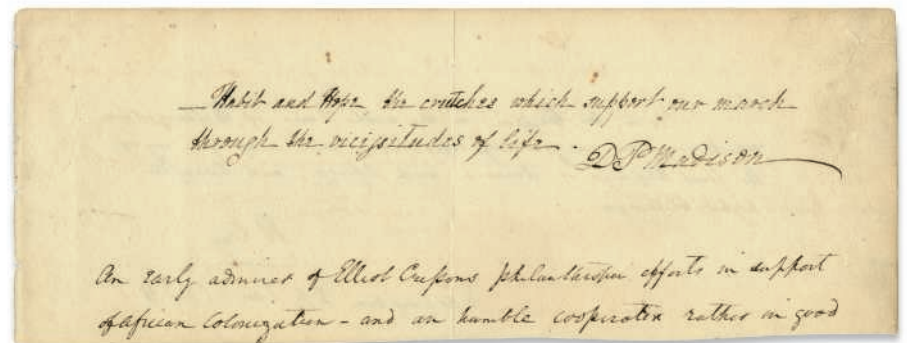 — Habit and Hope the crutches which support our march
through the vicissitudes of life.
D P Madison
An early admirer of Elliot Cressons philanthropic efforts in support
of African Colonization – and an humble cooperator rather in good